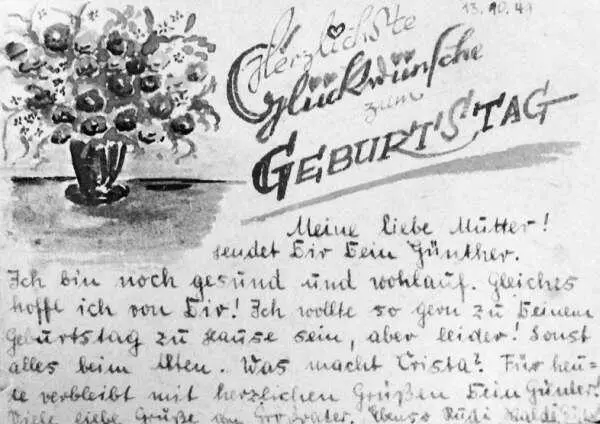 13.10.49
Herzlichste
Glückwünsche
zum
GEBURTSTAG
Meine liebe Mutter!
sendet Dir Dein Günther.
Ich bin noch gesund und wohlauf. Gleiches
hoffe ich von Dir! Ich wollte so gern zu Deinem
Geburtstag zu Hause sein, aber leider! Sonst
alles beim Alten. Was macht Crista? Für heu-
te verbleibt mit herzlichen Grüßen Dein Günter!
Viele liebe Grüße an Großvater. Ebenso Rudi